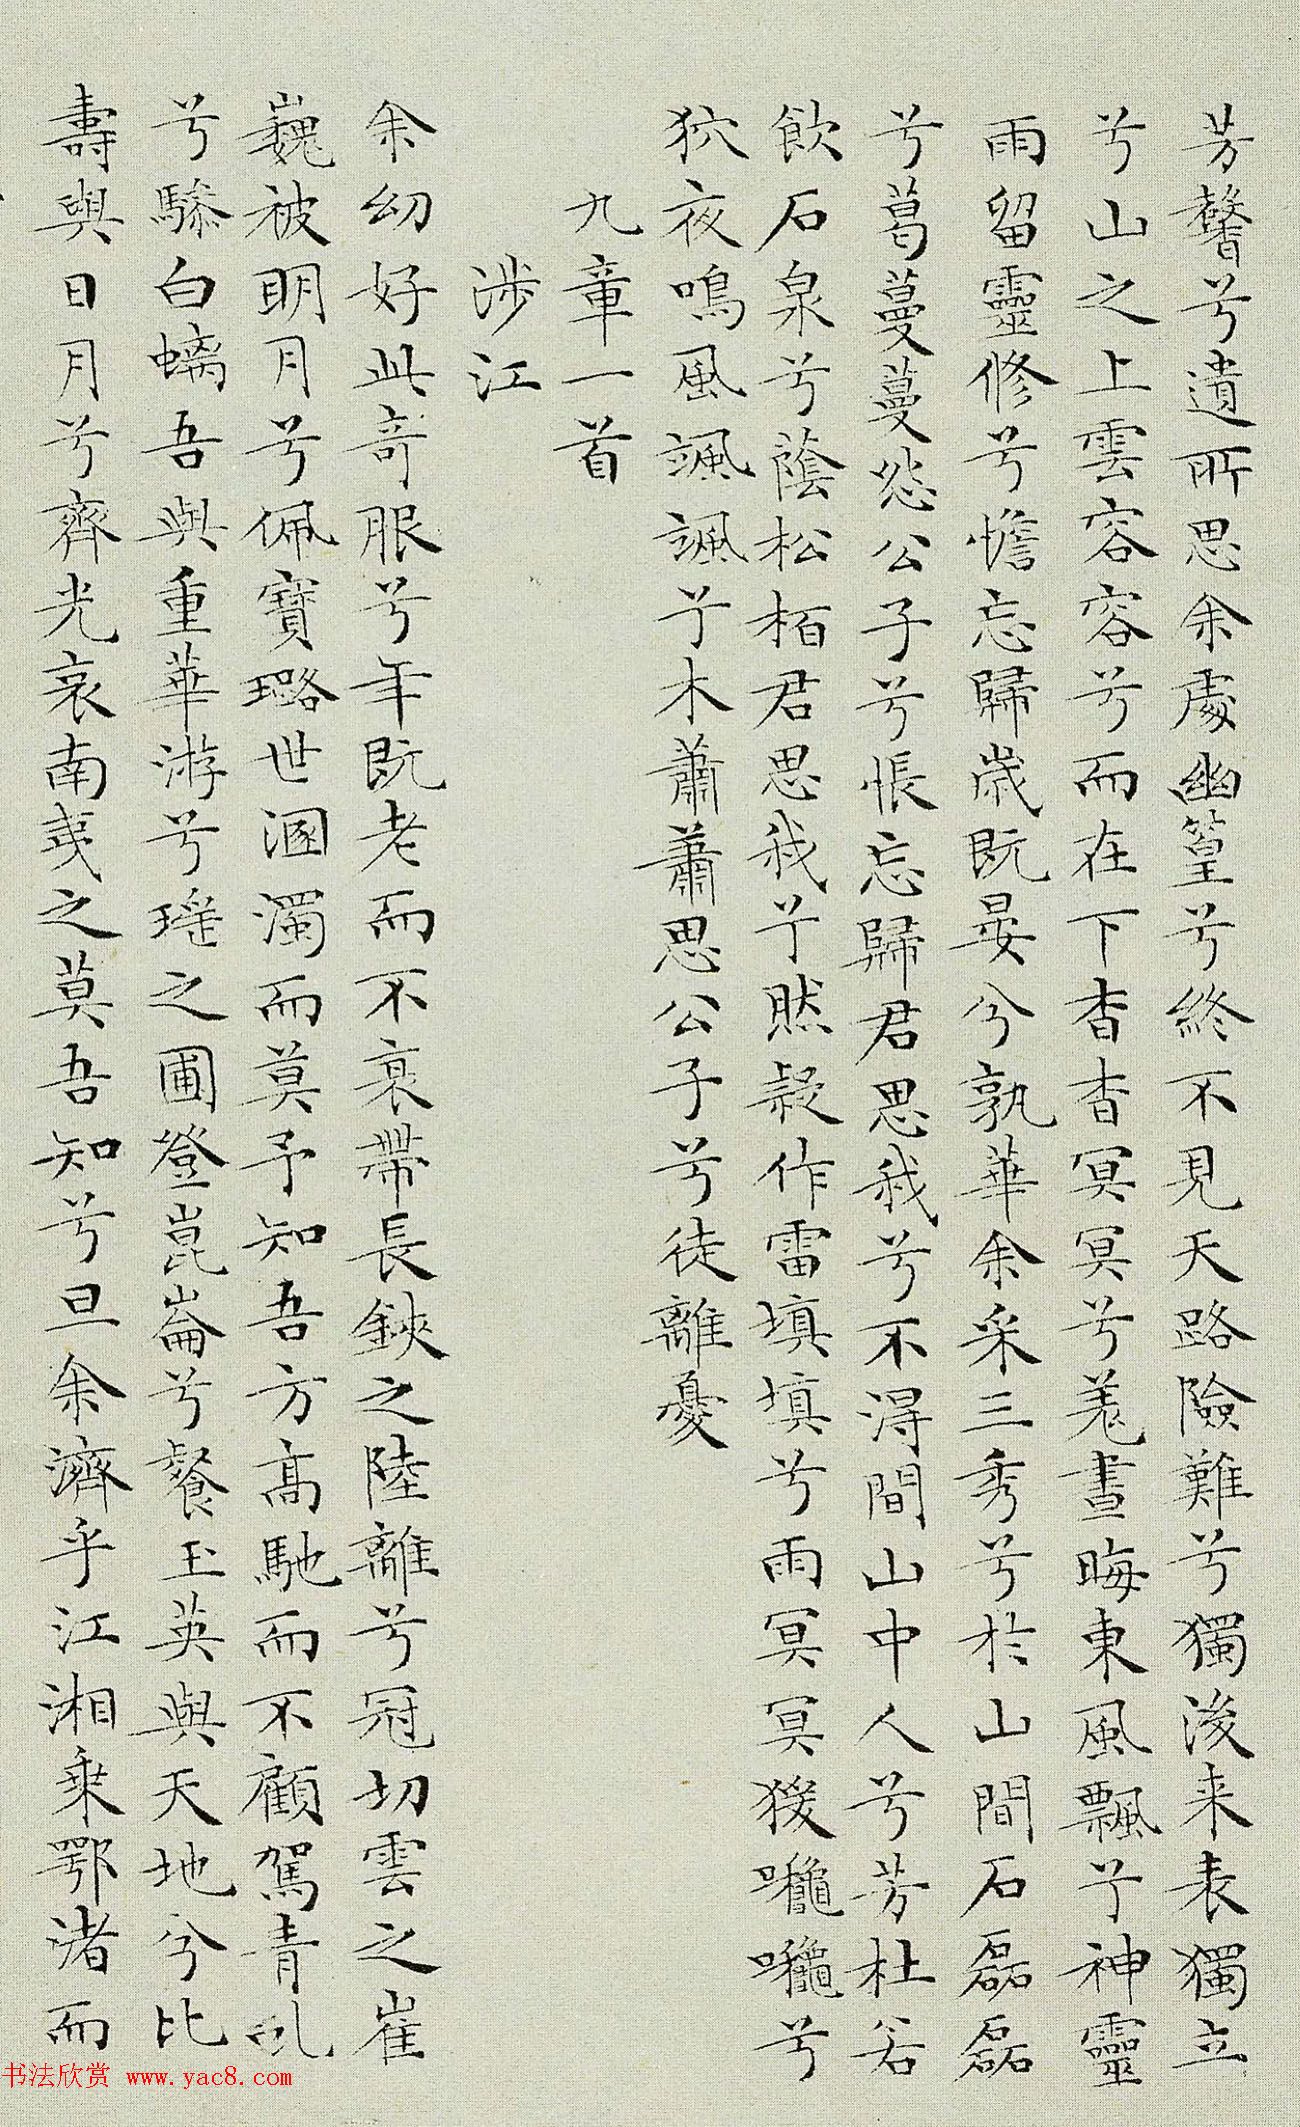 芳馨兮遺所思余處幽篁兮終不見天路險難兮獨後来表獨立
兮山之上雲容容兮而在下杳杳冥冥兮羌晝晦東風飄兮神靈
雨留靈修兮憺忘歸歳既晏兮孰華余采三秀兮於山間石磊磊
兮葛蔓蔓怨公子兮悵忘歸君思我兮不得間山中人兮芳杜若
飲石泉兮蔭松栢君思我兮然疑作雷填填兮雨冥冥猨嚨嚨兮
狖夜鳴風颯颯兮木蕭蕭思公子兮徒離憂
九章一首
涉江
余幼好此竒服兮年既老而不衰帶長鋏之陸離兮冠切雲之崔
巍被明月兮佩寶璐世溷濁而莫予知吾方高馳而不顧駕青虬
兮驂白螭吾與重華游兮瑶之圃登崑崙兮餐玉英與天地兮比
壽與日月兮齊光哀南夷之莫吾知兮旦余濟乎江湘乘鄂渚而
书法欣赏 www.yac8.com